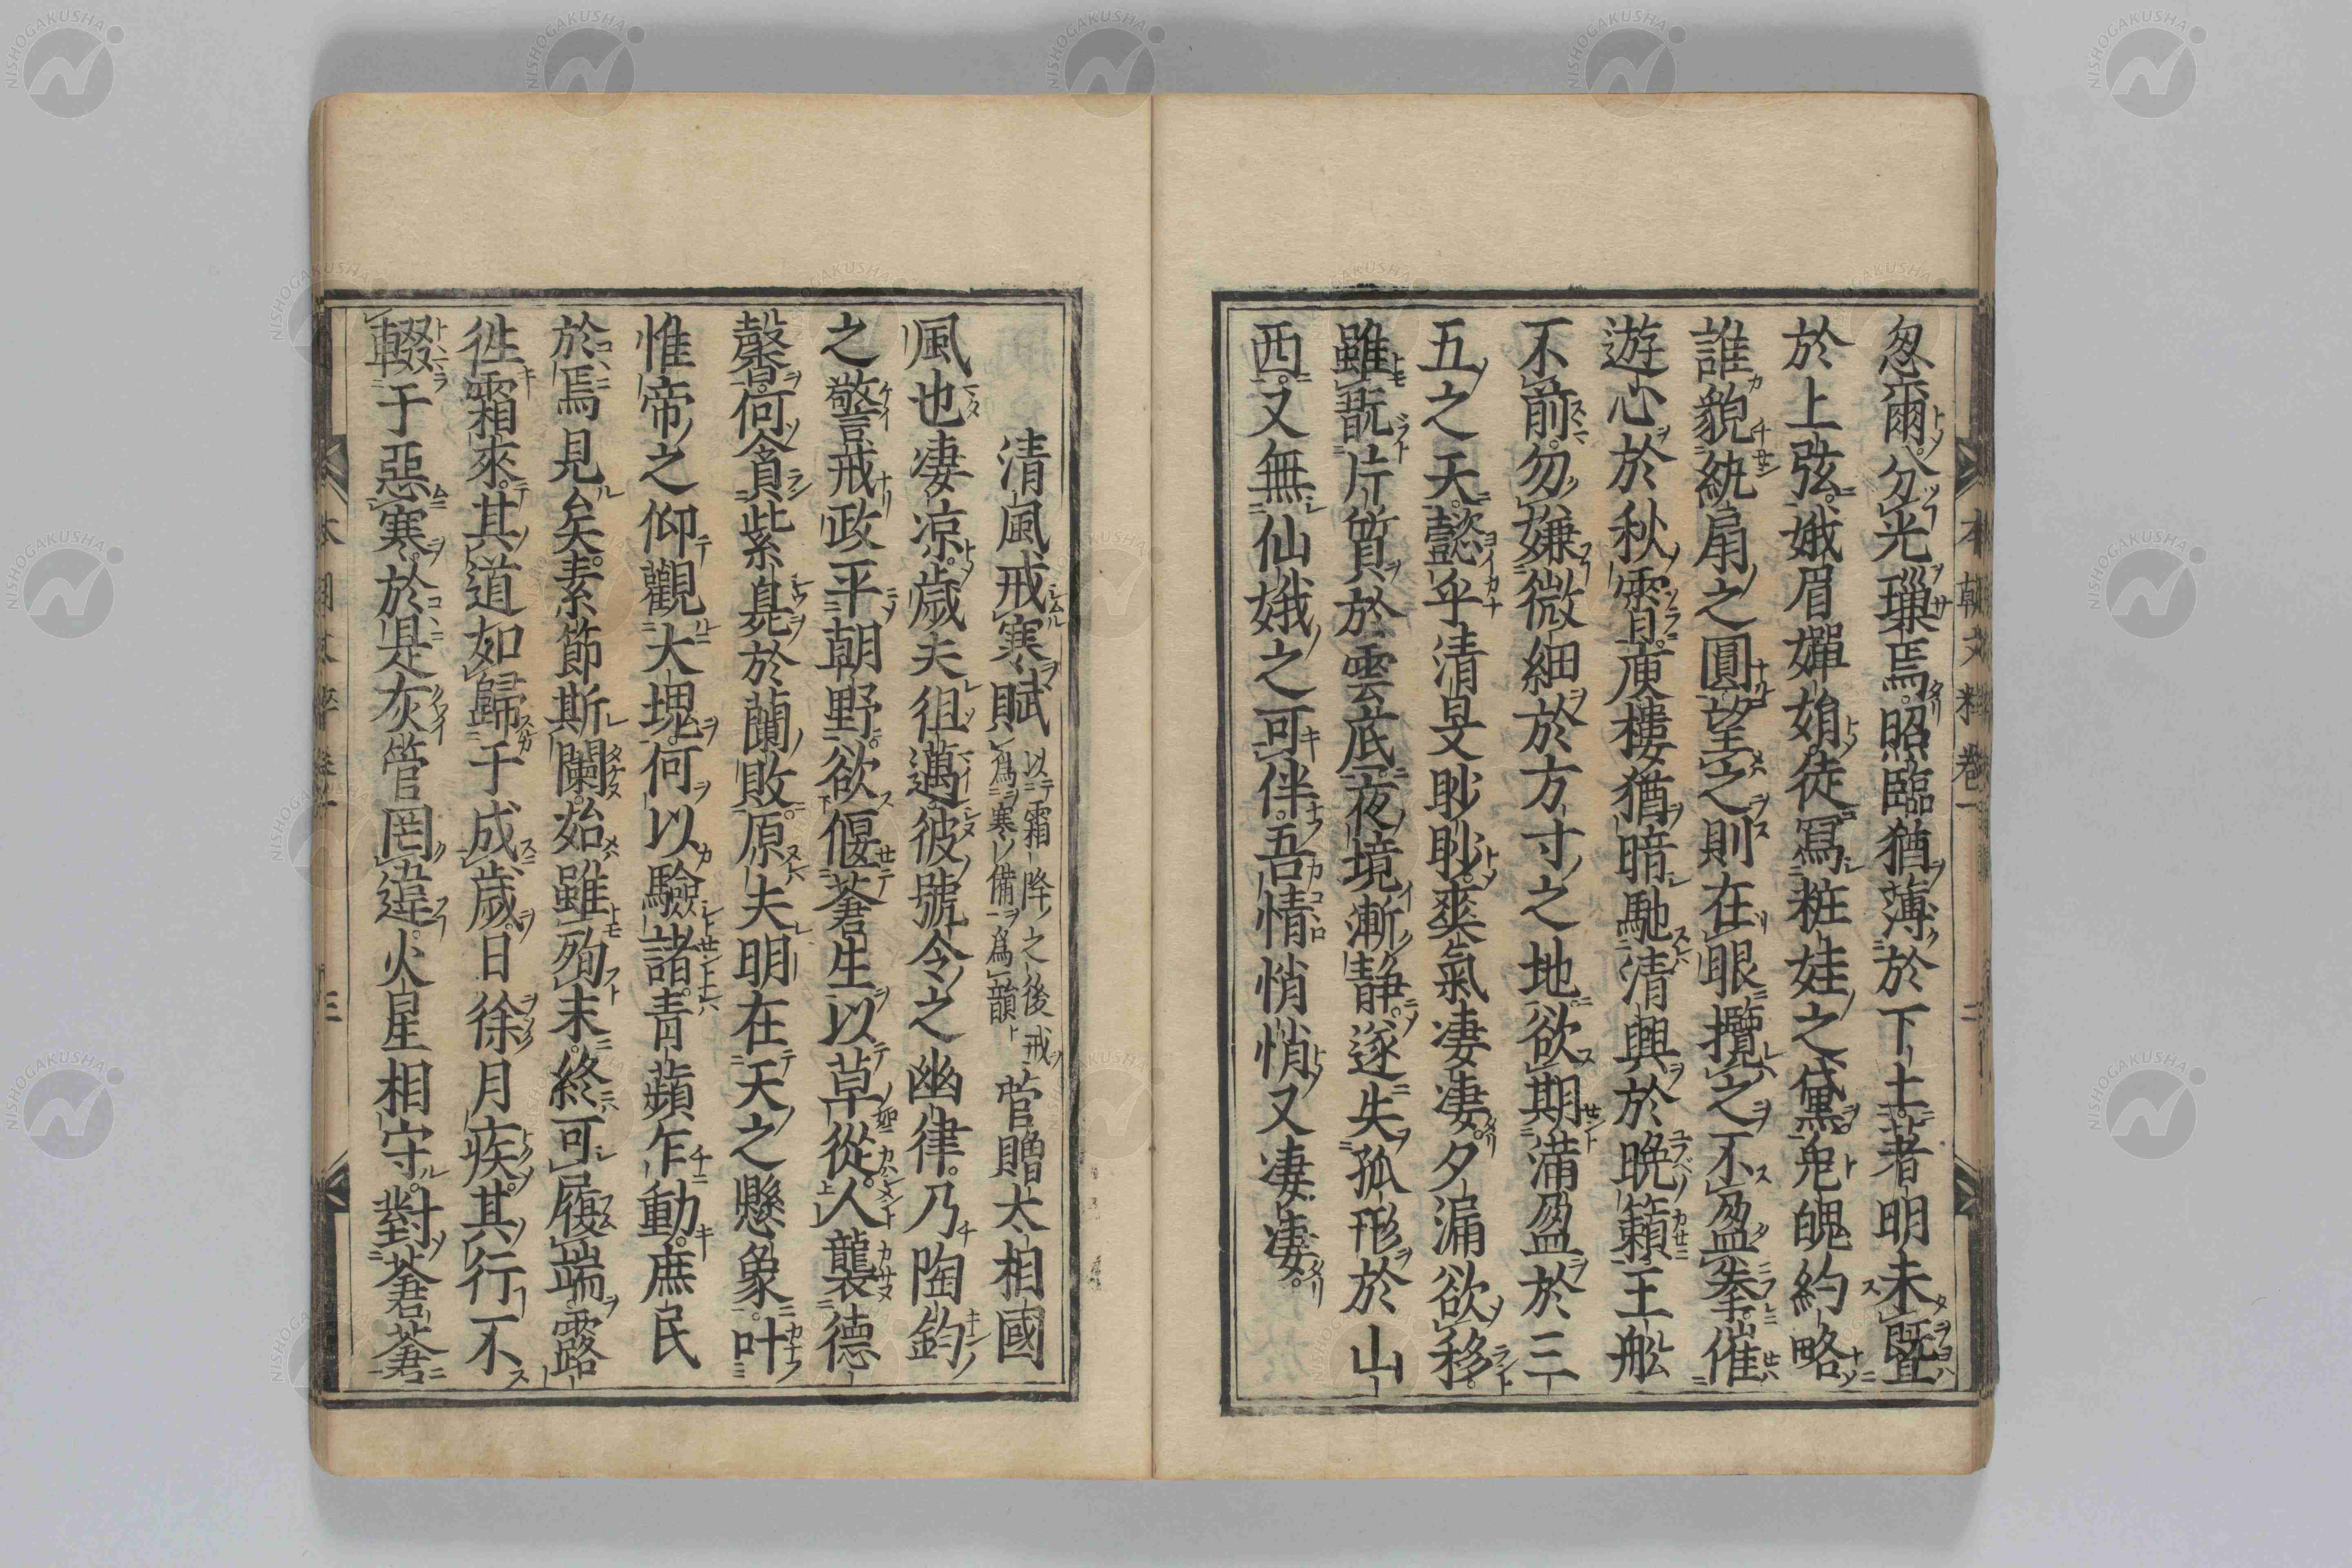 忽爾分光璅焉照臨猶薄於下土著明未曁
於上弦娥眉嬋娟徒冩粧娃之黛兔魄約略
誰貌紈扇之圓望之則在眼攬之不盈拳催
遊心於秋霄庾樓猶暗馳清興於晩籟王舩
不前勿嫌微細於方寸之地欲期滿盈於三
五之天懿乎清旻眇眇爽氣凄凄夕漏欲移
雖翫片質於雲底夜境漸静遂失孤形於山
西又無仙娥之可伴吾情悄悄又凄凄
清風戒寒賦 以霜降之後戒爲寒備爲韻 菅贈太相國
風也凄凉歳夫徂邁彼號令之幽律乃陶鈞
之警戒政平朝野欲偃蒼生以草從人襲德
馨何貪紫㒵於蘭敗原夫明在天之懸象叶
惟帝之仰觀大塊何以驗諸青蘋乍動庶民
於焉見矣素節斯闌始雖殉末終可履端露
徃霜來其道如歸于成歳日徐月疾其行不
輟于惡寒於是灰管罔違火星相守對蒼蒼
本朝文粹卷一
二
三
NISHOGAKUSHA